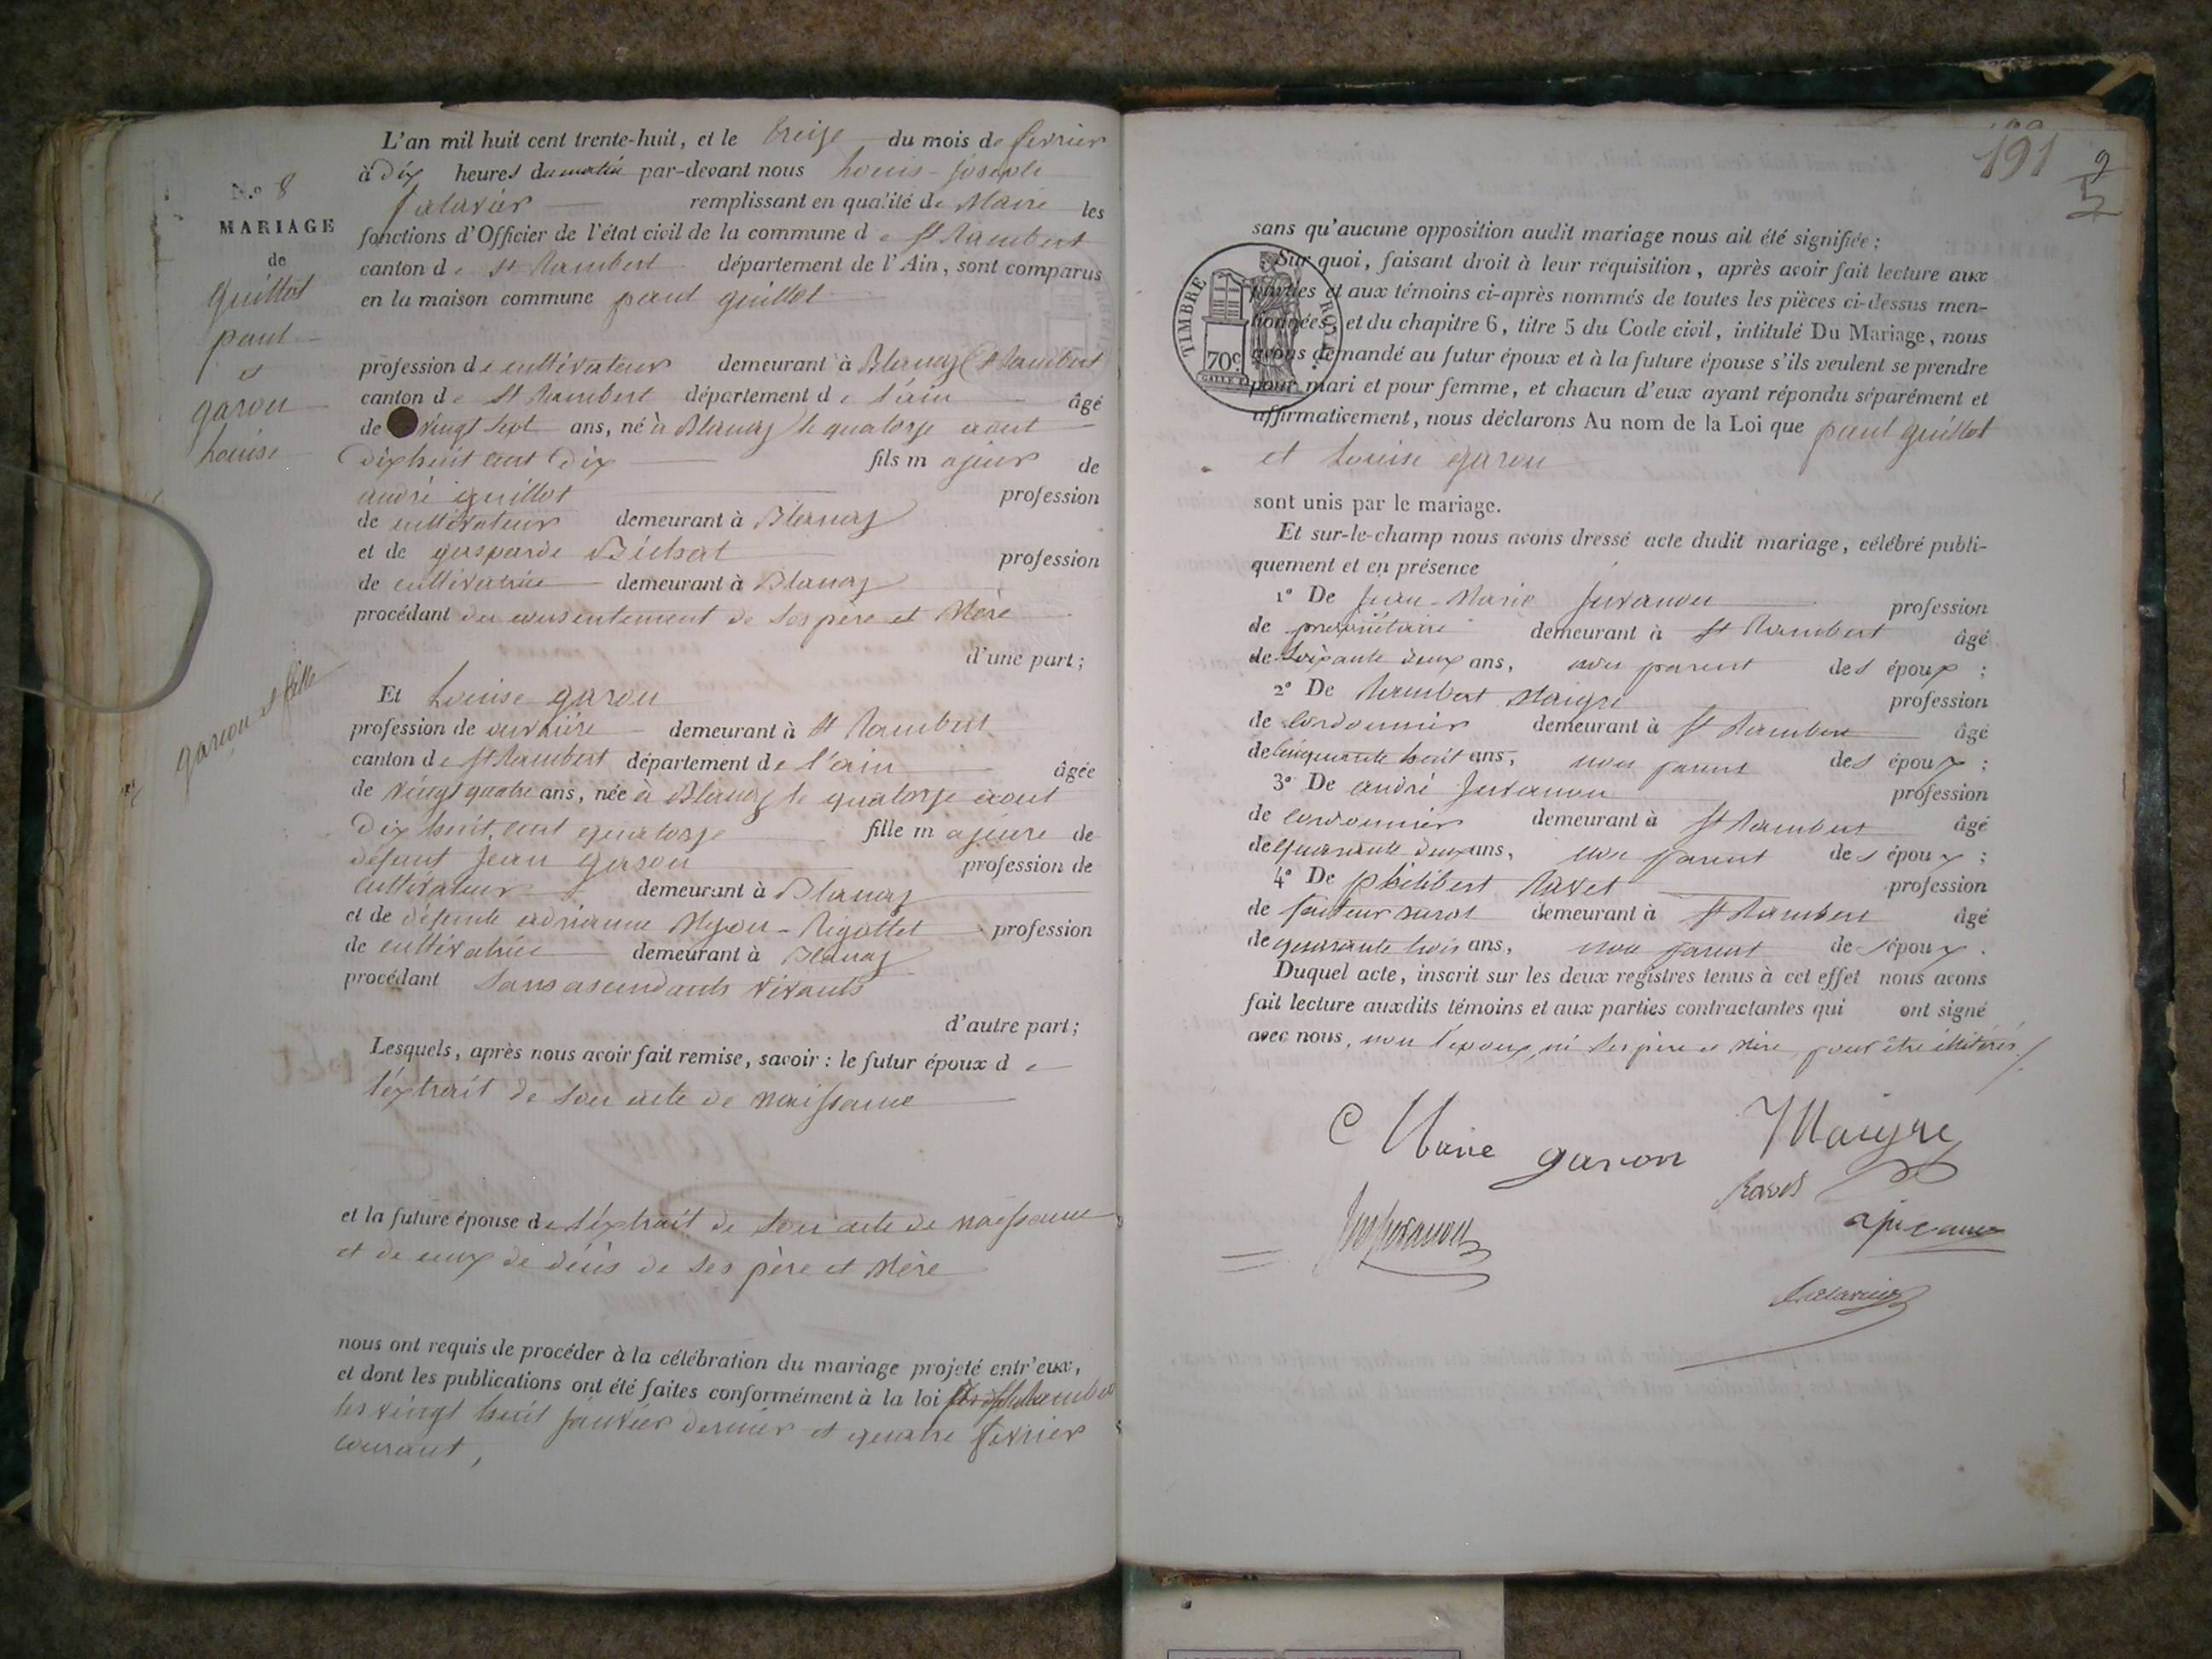 N.o 8
MARIAGE
de
Guillot
paul
et
garon
Louise
garcon et fille
L'an mil huit cent trente-huit, et le treize du mois de fevrier
à dix heures du matin par-devant nous Louis-joseph
falavier remplissant en qualité de Maire les
fonctions d'Officier de l'état civil de la commune de St Rambert
canton de St Rambert département de l'Ain, sont comparus
en la maison commune paul guillot
profession de cultivateur demeurant à Blanaz (St Rambert
canton de St Rambert département de l'ain âgé
de vingt sept ans, né à Blanaz le quatorze aout
dix huit cent dix fils majeur de
andré guillot profession
de cultivateur demeurant à Blanaz
et de gasparde profession
de cultivatrice demeurant à Blanaz
procédant du consentement de ses père et Mère
d'une part;
Et Louise garon
profession de ouvrière demeurant à St Rambert
canton de St Rambert département de l'ain âgée
de vingt quatre ans, née à Blanaz le quatorze aout
dix huit cent quatorze fille majeure de
défunt Jean garon profession de
cultivateur demeurant à Blanaz
et de défunte adrianne Rigollet profession
de cultivatrice demeurant à Blanaz
procédant sans ascendants vivants
d'autre part;
Lesquels, après nous avoir fait remise, savoir : le futur époux de
l'extrait de son acte de naissance
et la future épouse de l'extrait de son acte de naissance
et de ceux de décès de ses père et Mère
nous ont requis de procéder à la célébration du mariage projeté entr'eux,
et dont les publications ont été faites conformément à la loi
les vingt huit janvier dernier et quatre fevrier
courant,
191
9
5
sans qu'aucune opposition audit mariage nous ait été signifiée;
Sur quoi, faisant droit à leur réquisition, après avoir fait lecture aux
parties et aux témoins ci-après nommés de toutes les pièces ci-dessus men-
tionnées, et du chapitre 6, titre 5 du Code civil, intitulé Du Mariage, nous
avons demandé au futur époux et à la future épouse s'ils veulent se prendre
pour mari et pour femme, et chacun d'eux ayant répondu séparément et
affirmativement, nous déclarons Au nom de la Loi que paul guillot
et Louise garon
TIMBRE ROYAL
70c
sont unis par le mariage.
Et sur-le-champ nous avons dressé acte dudit mariage, célébré publi-
quement et en présence
1° De Jean-Marie Juvanon profession
de propriétaire demeurant à St Rambert âgé
de soixante deux ans, non parent des époux;
2° De Rambert Maigre profession
de cordonnier demeurant à St Rambert âgé
de cinquante huit ans, non parent des époux;
3° De andré Juvanon profession
de cordonnier demeurant à St Rambert âgé
de quarante deux ans, non parent des époux;
4° De philibert Ravet profession
de facteur rural demeurant à St Rambert âgé
de quarante trois ans, non parent des époux.
Duquel acte, inscrit sur les deux registres tenus à cet effet nous avons
fait lecture auxdits témoins et aux parties contractantes qui ont signé
avec nous, non l'époux, ni ses père et Mère pour être illitérés./.
Marie garon
Maigre
Ravet